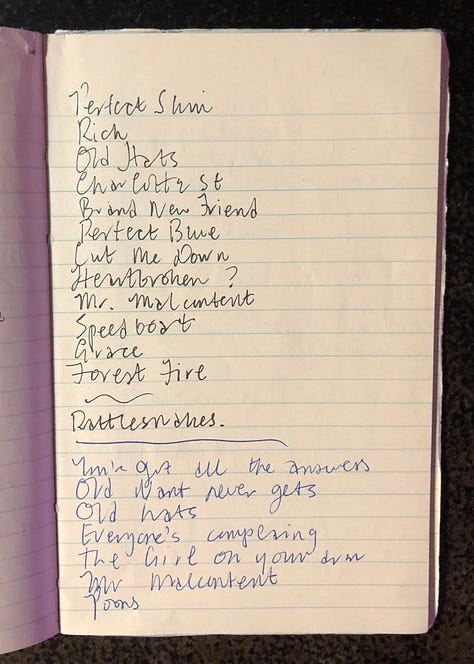 Perfect Skin
Rich
Old Hats
Charlotte St
Brand New Friend
Perfect Blue
Cut Me Down
Heartbroken ?
Mr. Malcontent
Speedboat
Grace
Forest Fire
Rattlesnakes.
You've got all the answers
Old Want never gets
Old hats
Everyone's complaining
The Girl on your arm
Mr Malcontent
Poons